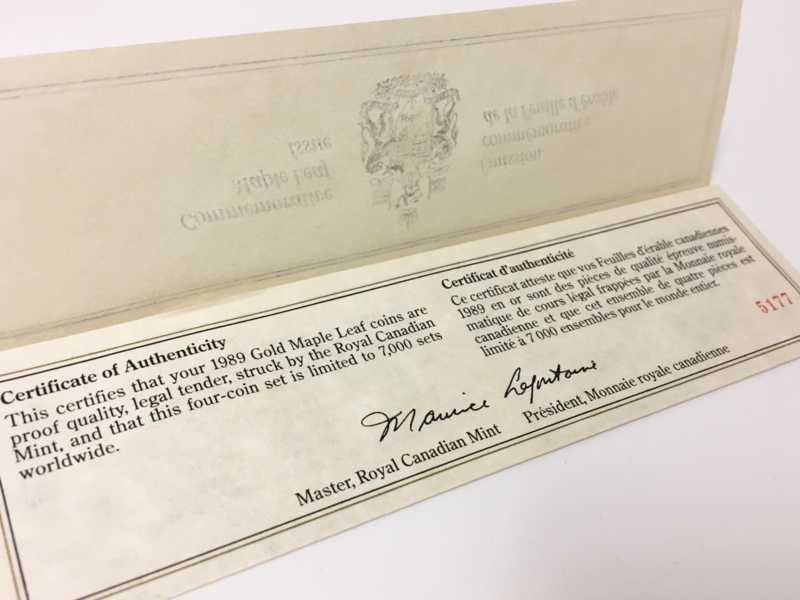 Commemorative
Maple Leaf
Issue
Émission
commémorative
de la Feuille d'érable
Certificate of Authenticity
This certifies that your 1989 Gold Maple Leaf coins are
proof quality, legal tender, struck by the Royal Canadian
Mint, and that this four-coin set is limited to 7,000 sets
worldwide.
Certificat d'authenticité
Ce certificat atteste que vos Feuilles d'érable canadiennes
1989 en or sont des pièces de qualité épreuve numis-
matique de cours légal frappées par la Monnaie royale
canadienne et que cet ensemble de quatre pièces est
limité à 7 000 ensembles pour le monde entier.
5177
Maurice Lafontaine
Master, Royal Canadian Mint
Président, Monnaie royale canadienne